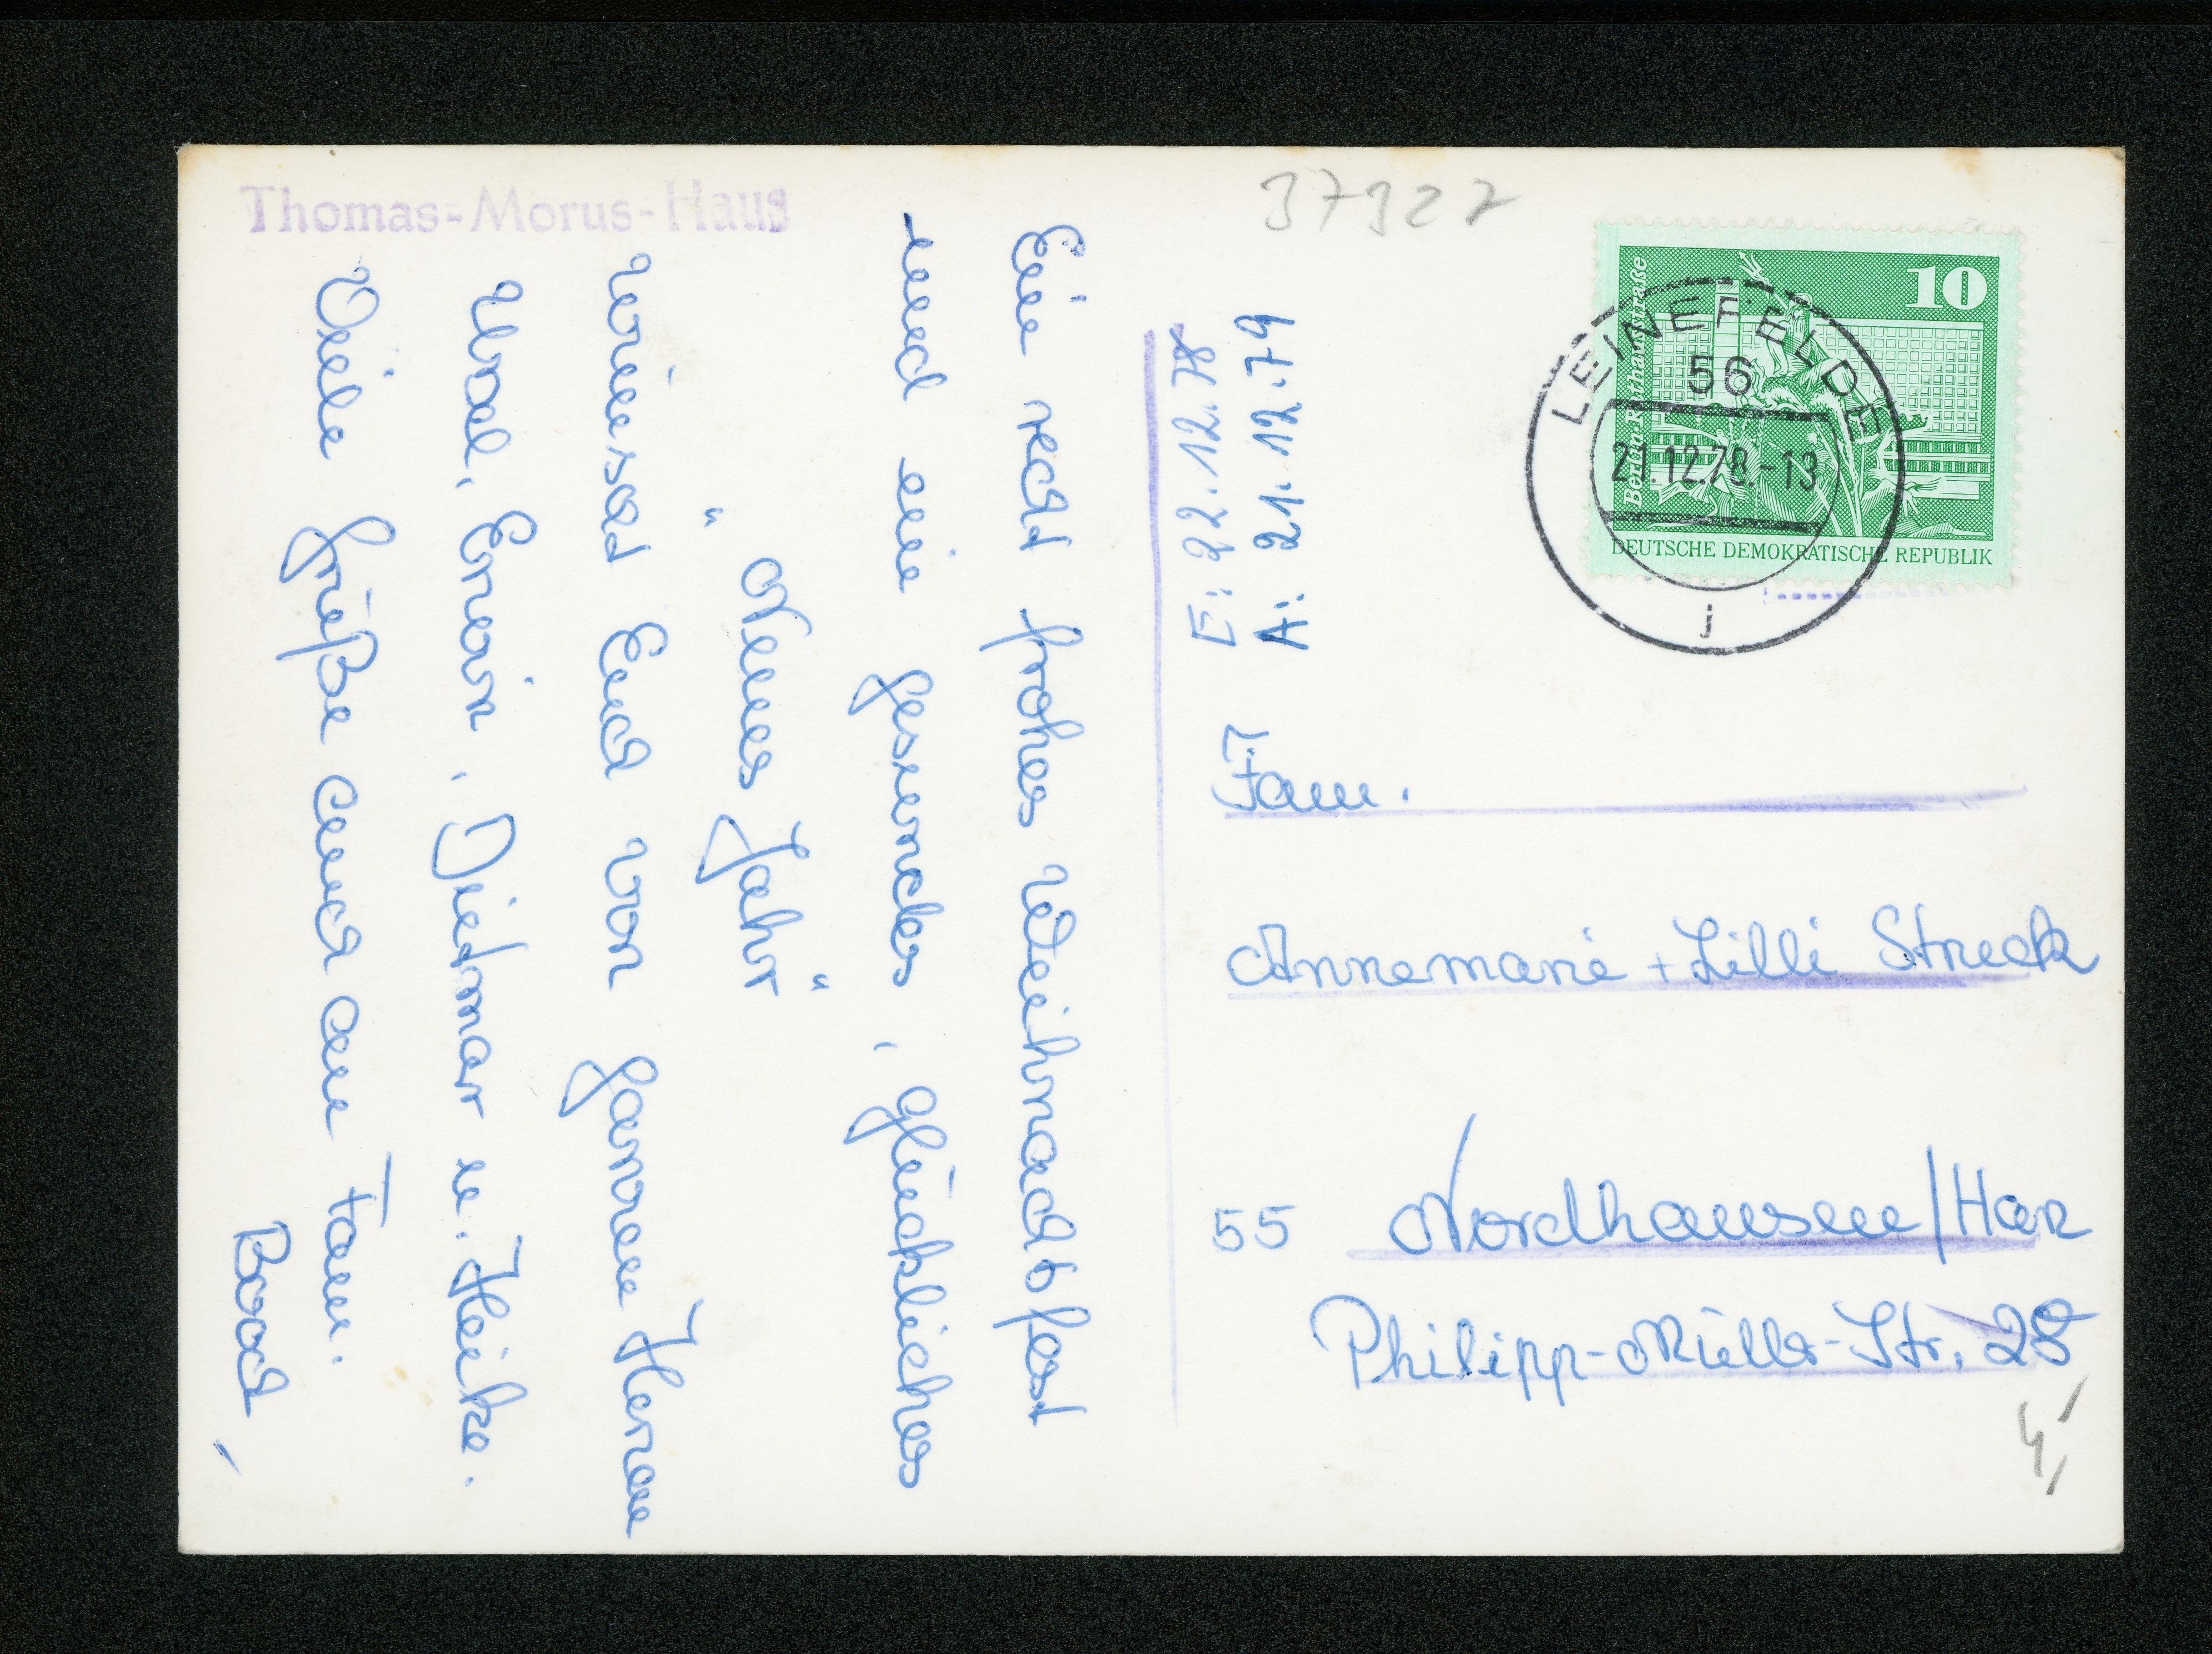 Thomas-Morus-Haus
37927
Ein recht frohes Weihnachtsfest
und ein gesundes, glückliches
"Neues Jahr"
wünscht Euch von ganzem Herzen
Ursel, Erwin, Dietmar u. Heike.
Viele Grüße auch an Fam.
E: 22.12.78
A: 21.12.79
Berlin Rathausstraße
10
DEUTSCHE DEMOKRATISCHE REPUBLIK
LEINEFELDE
56
21.12.78.-13
j
Fam.
Annemarie + Lilli Streck
55 Nordhausen/Harz
Philipp-Müller-Str. 28